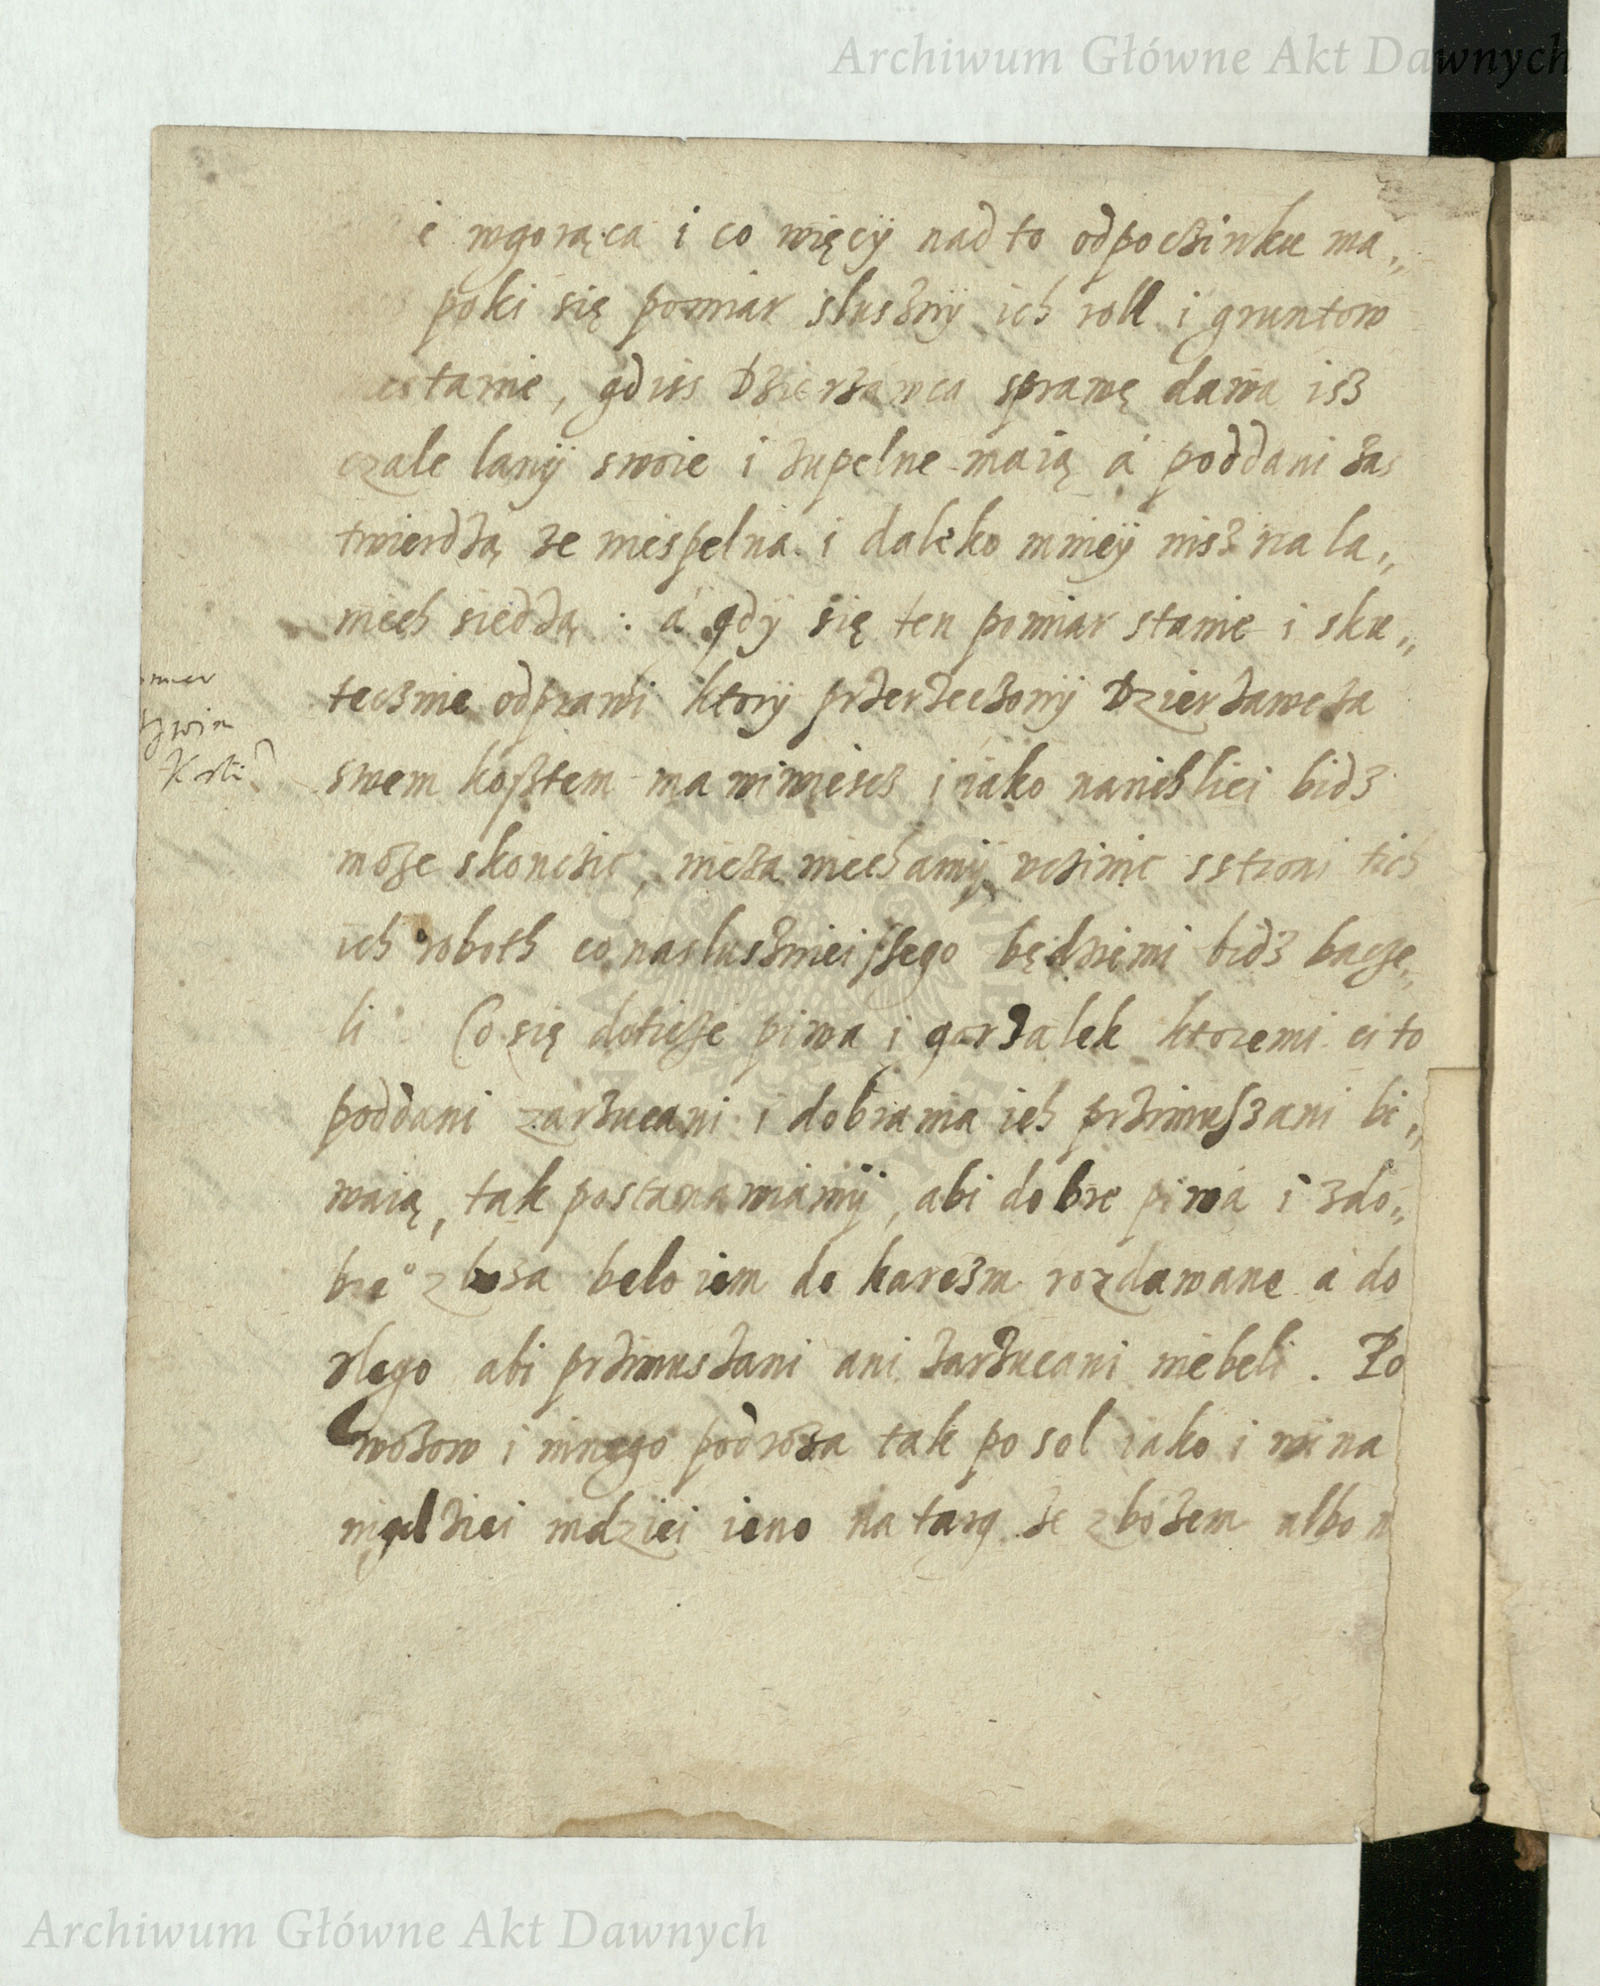 Archiwum Główne Akt Dawnych
i wgorąca i co więcÿ nad to odpoczinku ma„
poki się pomiar slusznÿ ich roll i gruntow
stanie, gdiss Dzierzawca sprawę dawa isz
czale lanÿ swoie i zupelne maią á poddani zas
twierdzą ze niespelna i daleko mnieÿ nisz na la„
niech siedzą : á gdÿ się ten pomiar stanie i sku„
tecznie odprawi ktorÿ przerzeczonÿ Dzierzawcza
swem kosztem ma winiescz i iako
moze skonczic, niezaniechamÿ uczinic sstroni tich
ich roboth co nasluszniejszego będziemi bidz bacze„
li Co się doticze piwa i gorzalek ktoremi ci to
poddani zarzucani i dobrania ich przimuszani bi„
waią, tak postanawiamÿ, abi dobre piwá i zdo„
bre° zboza belo iem do karczm rozdawane á do
zlego abi przimuszani ani zarzucani niebeli. Po
wozow i innego podroza tak po sol iako i wina
indziei ieno na targ ze zbozem albo
Archiwum Główne Akt Dawnych